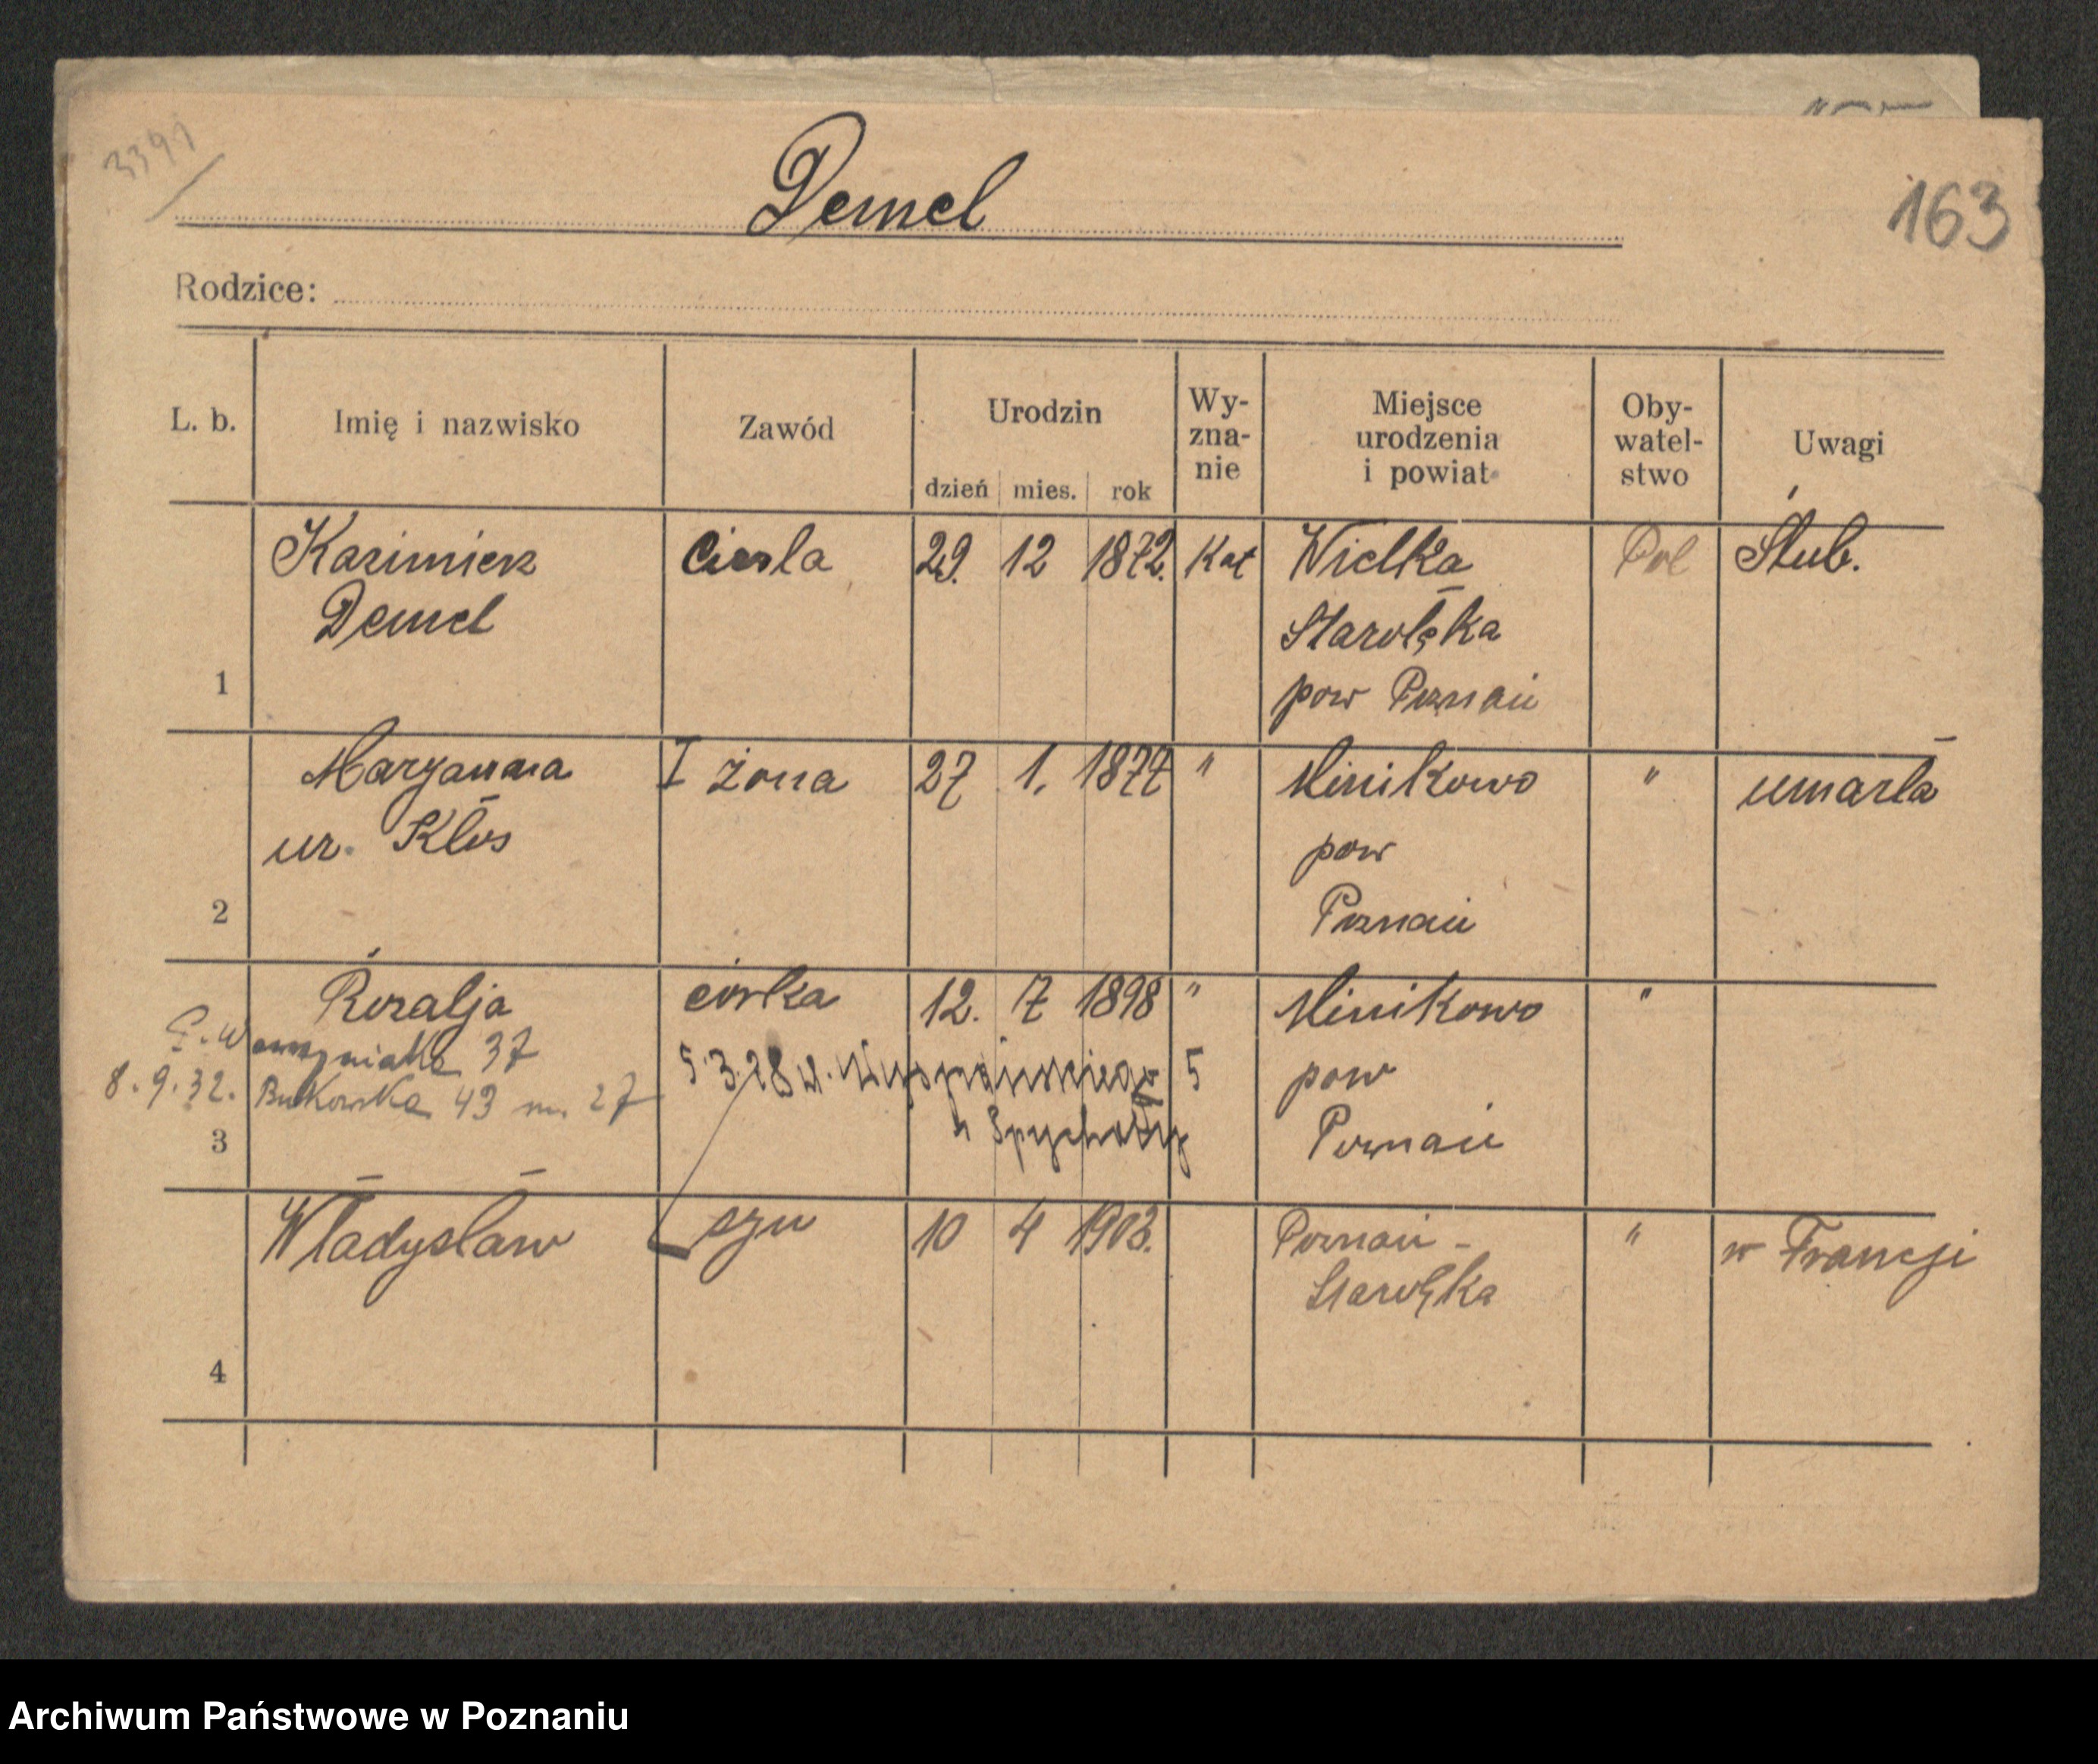 3391
Demel
163
Rodzice:
L. b. Imię i nazwisko Zawód Urodzin dzień mies. rok Wy-zna-nie Miejsce urodzenia i powiat Oby-watel-stwo Uwagi
1 Kazimierz Cieśla 29. 12 1872. Kat Wielka Pol Ślub.
Demel Starołęka
pow Poznań
2 Maryanna I żona 27 1. 1877 " Minikowo " umarła
ur. Kłos pow
Poznań
3 Rozalja córka 12. 7 1898 " Minikowo "
Wawrzyniaka 37 5.3.28 Wyspiańskiego 5 pow
8.9.32. Bukowska 43 m. 27 u Spychały Poznań
4 Władysław syn 10 4 1903. Poznań - " w Francji
Starołęka
Archiwum Państwowe w Poznaniu